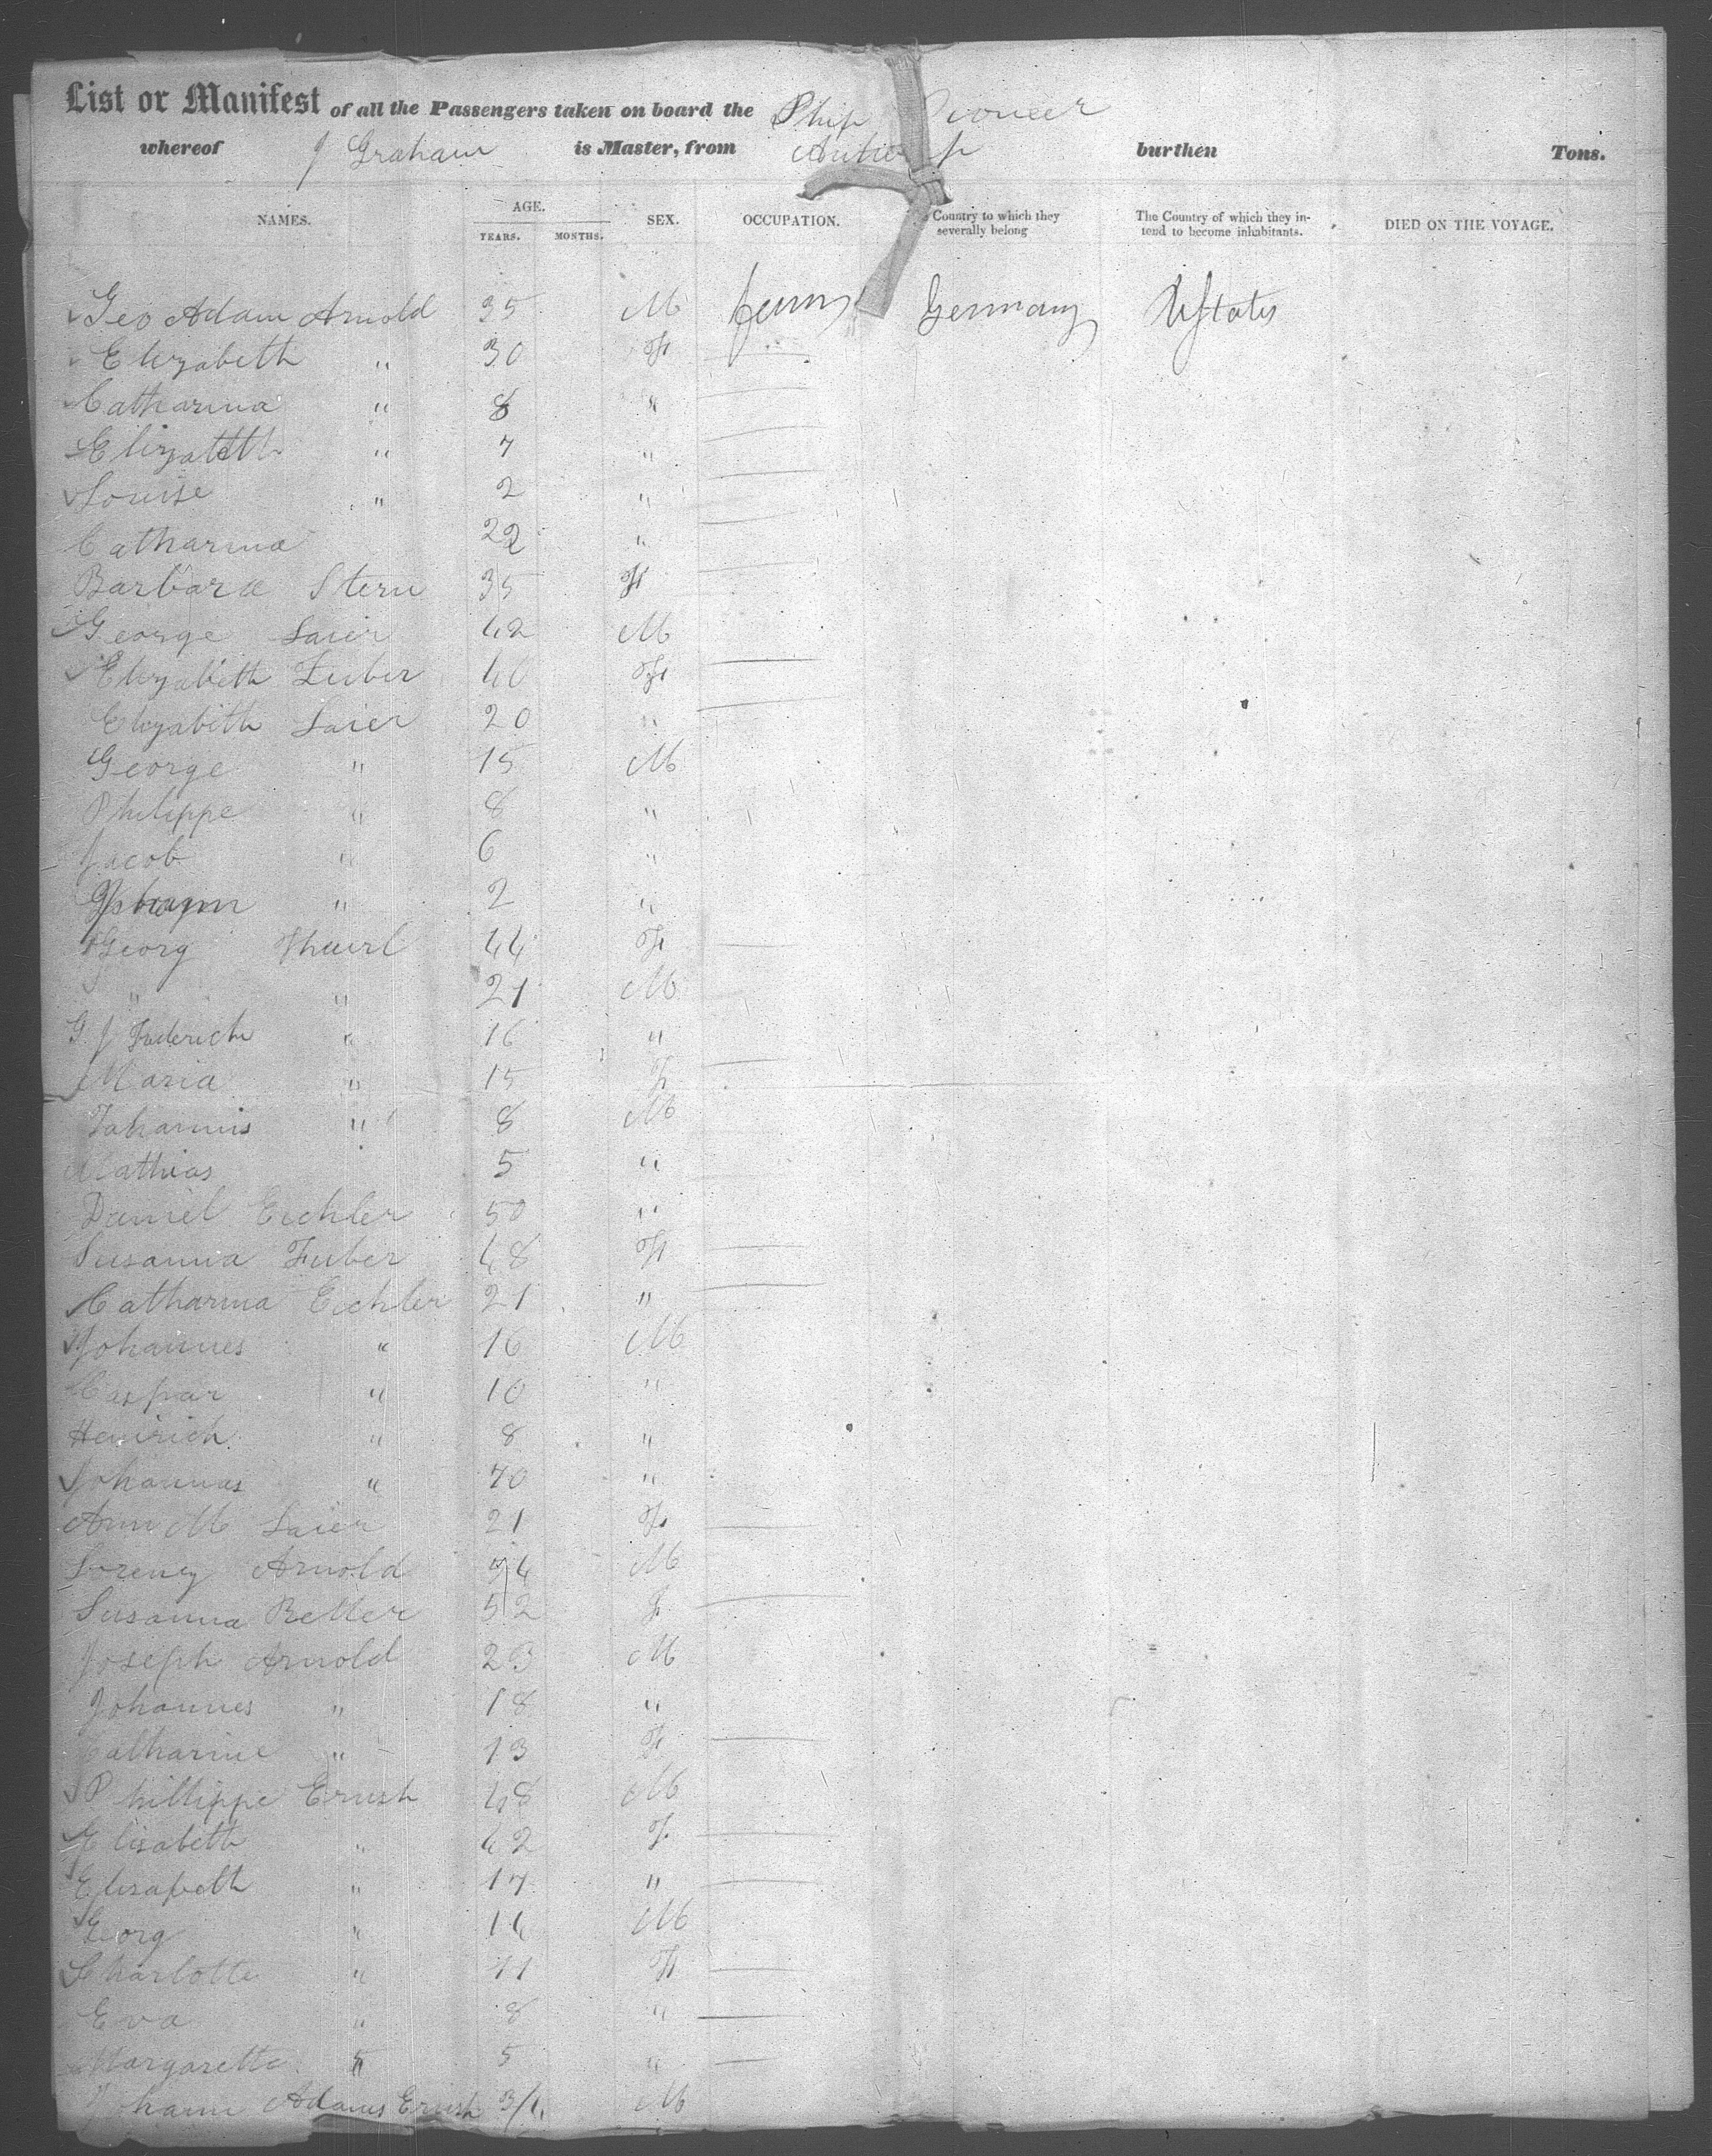 List or Manifest of all the Passengers taken on board the Ship Pioneer
whereof J Graham is Master, from Antwerp burthen Tons.
NAMES. AGE. YEARS. MONTHS. SEX. OCCUPATION. Country to which they severally belong The Country of which they intend to become inhabitants. DIED ON THE VOYAGE.
Geo Adam Arnold 35 M Germany UStates
Elizabeth " 30 F
Catharina " 8 "
Elizabeth " 7 "
Louise " 2 "
Catharina 22 "
Barbara Stern 35 F
George Laier 42 M
Elizabeth 40 F
Elizabeth Laier 20 "
George " 15 M
Philippe " 8 "
Jacob " 6 "
" 2 "
Georg 44 F
" " 21 M
G. J Frederich " 16 "
Maria " 15 F
Johannis " 8 M
Mathias 5 "
Daniel Eichler 50 "
Susanna Fuber 48 F
Catharina Eichler 21 "
Johannes " 16 M
Caspar " 10 "
Heinrich " 8 "
Johannas " 70 "
Ann M Laier 21 F
Lorenz Arnold 54 M
Susanna Retter 52 F
Joseph Arnold 23 M
Johannes " 18 "
Catharine " 13 F
Phillippe Ernsh 48 M
Elisabeth " 42 F
Elisabeth " 17 "
Georg " 14 M
Charlotte " 11 F
Eva " 8 "
Margaretta " 5 "
Johann Adams Ernsh 3/4 M